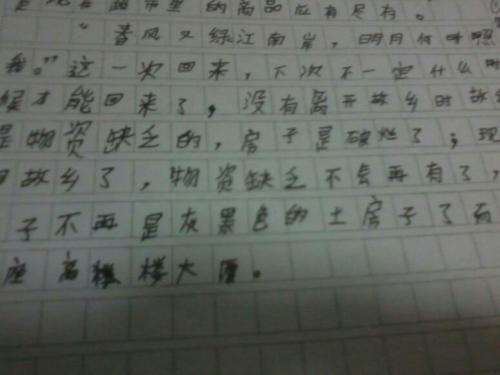 在超市里的商品应有尽有。
“春风又绿江南岸,明月何时照
我。”这一次回来,下次不一定什么时
候才能回来了,没有离开故乡时故乡
是物资缺乏的,房子是破烂了;现
故乡了,物资缺乏不会再有了,
子不再是灰黑色的土房子了而
座高楼大厦。